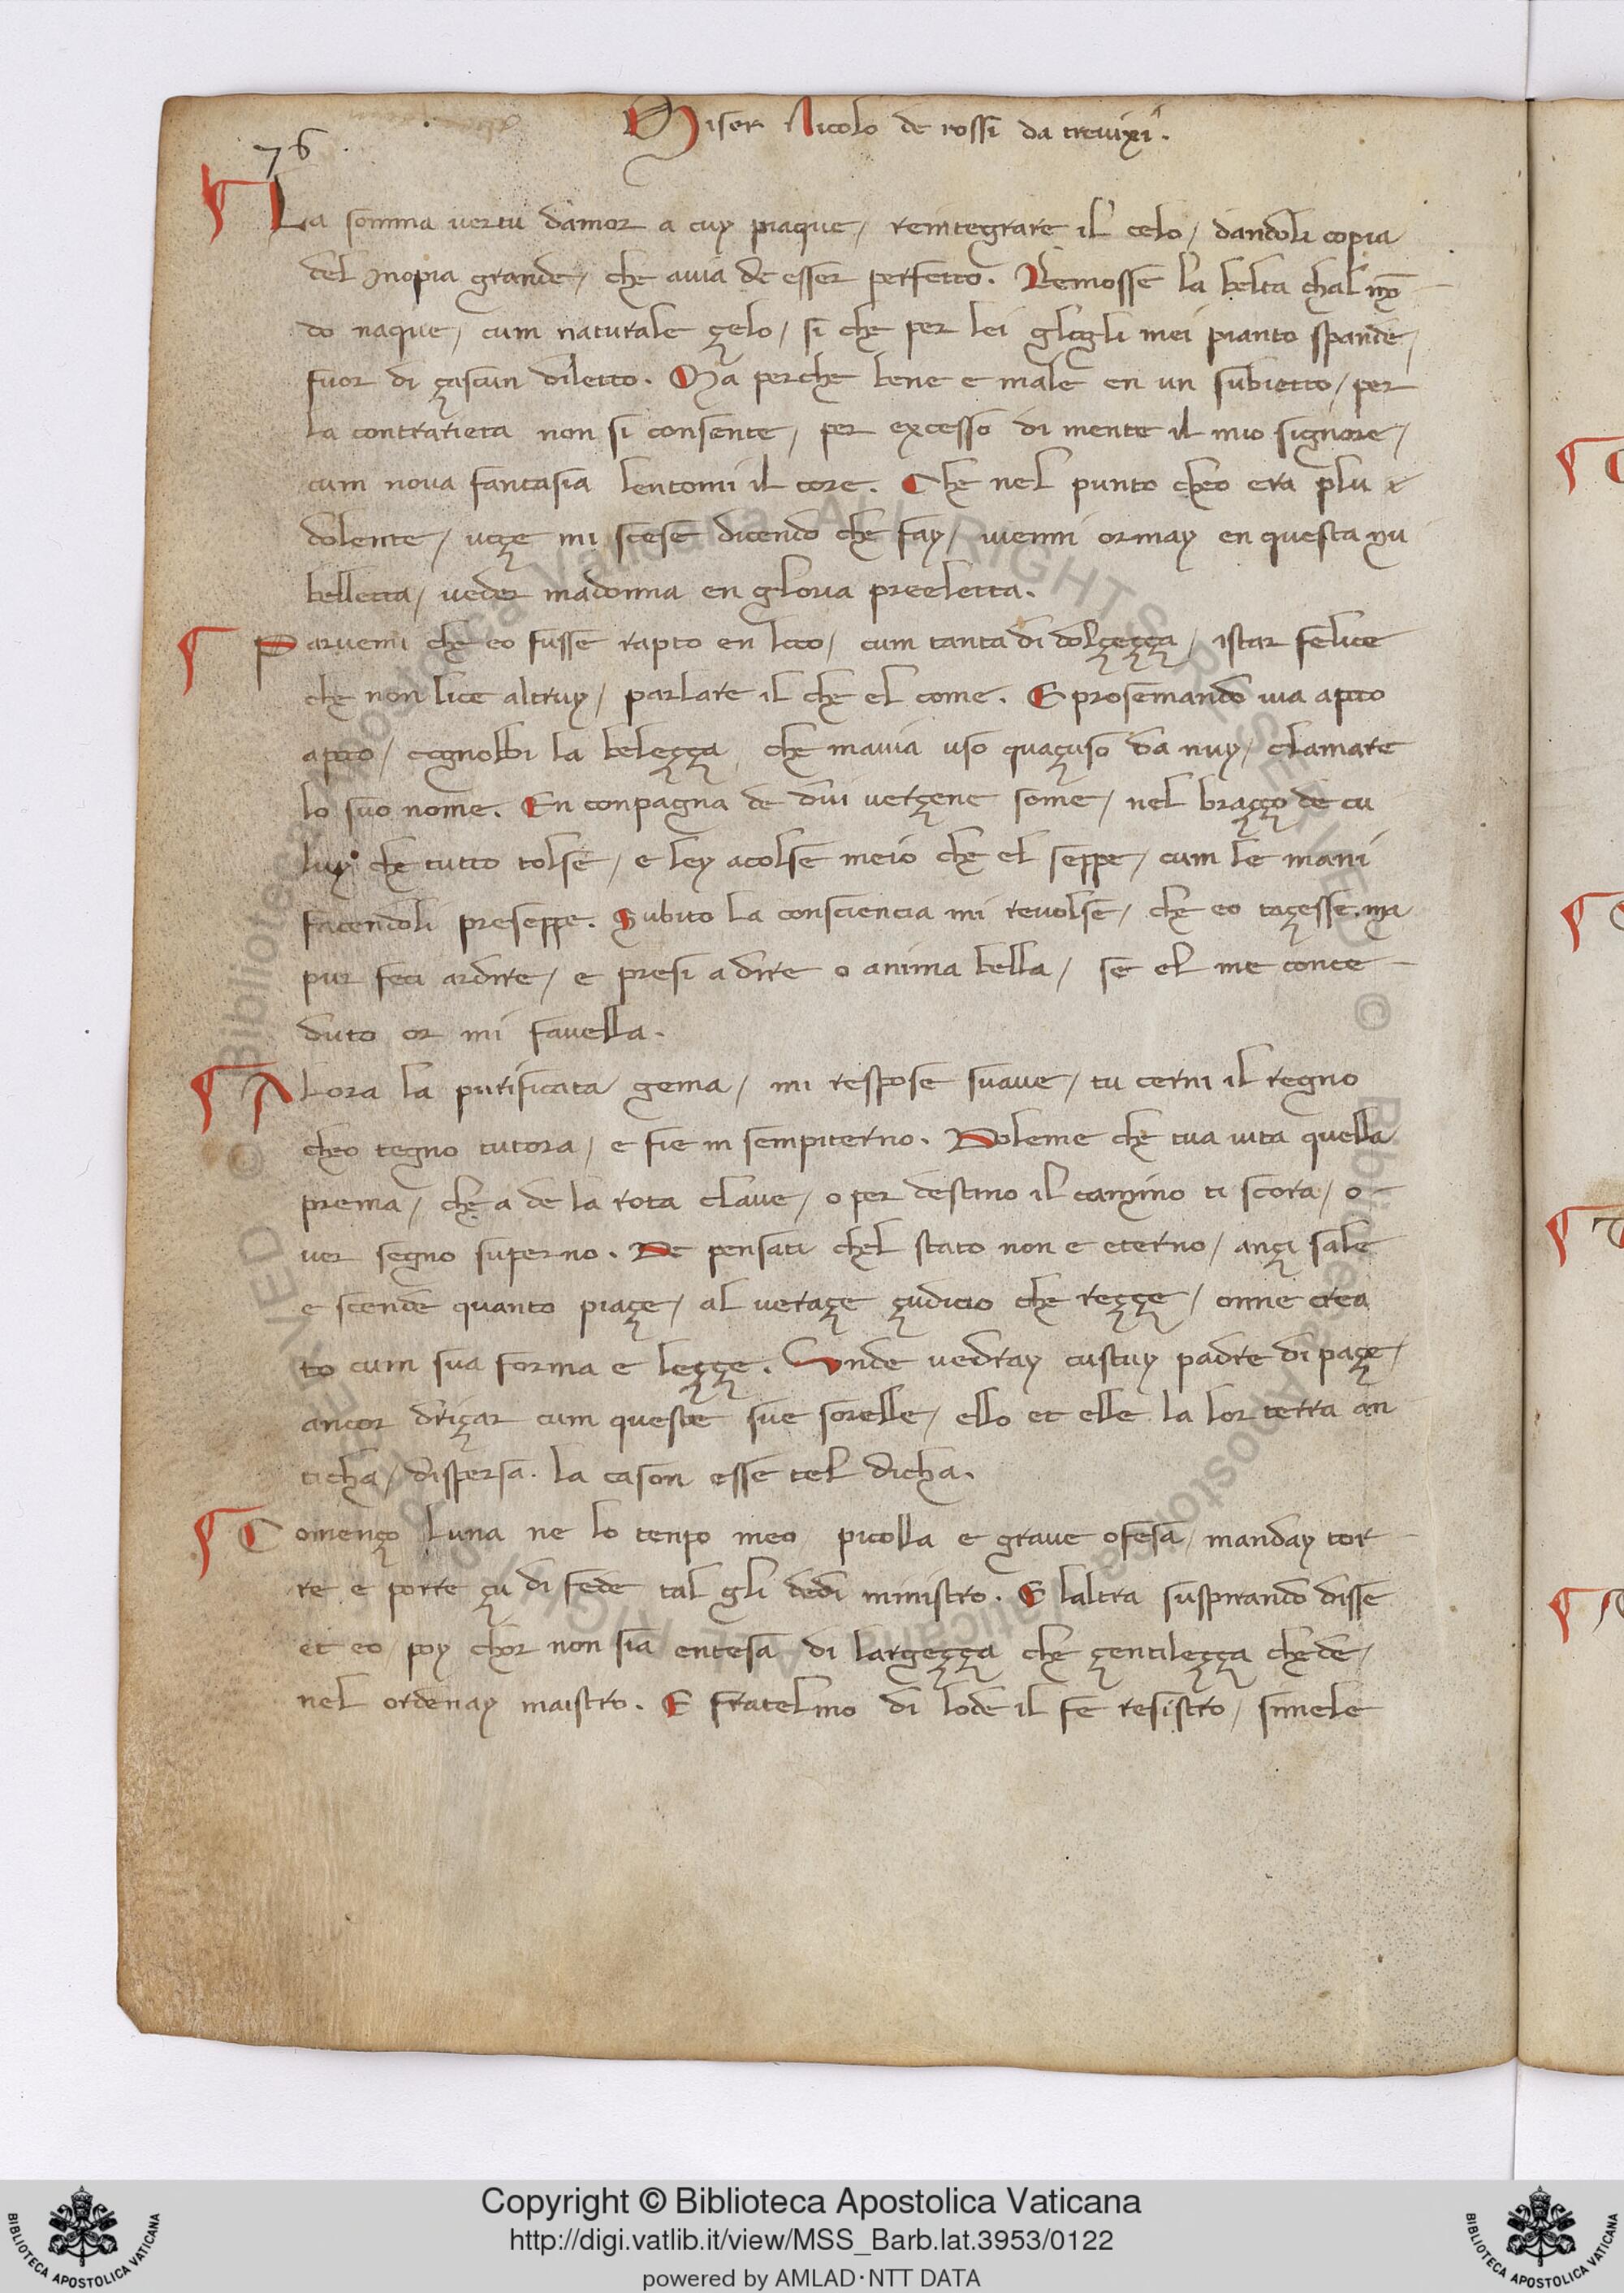 Miser Nicolo de rossi da trevixi.
76.
La somma vertu damor a cuy piaque / reintegrare il celo / dandoli copia
del Inopia grande / che avia de esser perfetto. Remosse la belta chal mō
do naque / cum naturale çelo / si che per lei glogli mei pianto spande /
fuor di çascun diletto. Ma perche bene e male en un subietto / per
la contrarieta non si consente / per excesso di mente il mio signore /
cum nova fantasia lentomi il core. Che nel punto cheo era plu
dolente / voçe mi scese dicendo che fay / vienni ormay en questa nu
belletta / veder madonna en gloria preeletta.
Parvemi che eo fusse rapto en loco / cum tanta di dolçeçça / istar felice
che non lice altruy / parlare il che el come. E prosemando via a poco
a poco / cognobbi la beleçça che mavia uso quaçuso da nuy / clamare
lo suo nome. En conpagna de dui verçene some / nel braçço de cu
luy che tutto tolse / e ley acolse meio che el seppe / cum le mani
facendoli preseppe. Subito la consciencia mi revolse / che eo taçesse. ma
pur feci ardire / e presi a dire o anima bella / se el me conce
duto or mi favella.
Alora la purificata gema / mi respose suave / tu cerni il regno
cheo tegno tutora / e fie in sempiterno. Doleme che tua vita quella
prema / che a de la rota clave / o per destino il camino ti scora / o
ver segno superno. De pensati chel stato non e eterno / ançi sale
e scende quanto piaçe / al veraçe çudicio che reççe / onne crea
to cum sua forma e leççe. Unde vedray custuy padre di paçe /
ancor driçar cum queste sue sorelle / ello et elle la lor terra an
ticha / dispersa. la cason esse tel dicha.
Començo luna ne lo tenpo meo / picolla e grave ofesa / manday tor
re e porre çu di fede tal gli dedi ministro. E laltra suspirando disse
et eo / poy chor non sia entesa di largeçça che çentileçça chede /
nel ordenay maistro. E fratelmo di lode il fe resistro / simele
Copyright © Biblioteca Apostolica Vaticana
http://digi.vatlib.it/view/MSS_Barb.lat.3953/0122
powered by AMLAD·NTT DATA
BIBLIOTECA APOSTOLICA VATICANA
BIBLIOTECA APOSTOLICA VATICANA